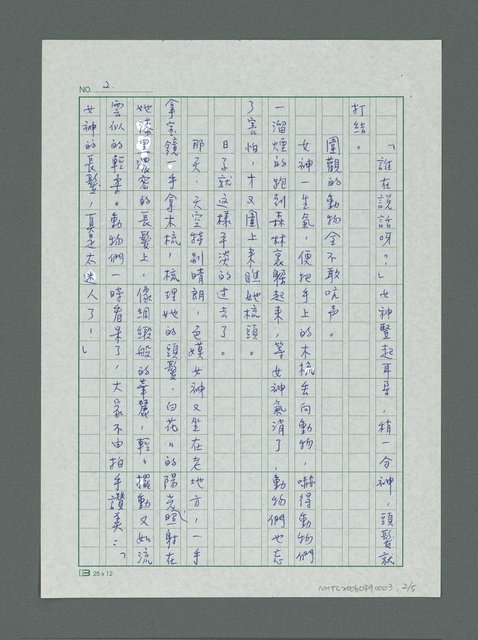 NO. 2
「誰在説話呀？」女神豎起耳朵，稍一分神，頭髮就
打結。
圍觀的動物全不敢吭声。
女神一生氣，便把手上的木梳丢向動物，嚇得動物們
一溜煙的跑到森林裏躲起來，等女神氣消了，動物們也忘
了害怕，才又圍上來瞧她梳頭。
日子就這樣平淡的过去了。
那天，天空特別晴朗，色嫫女神又坐在老地方，一手
拿宝鏡一手拿木梳，梳理她的頭髮，白花花的陽光照射在
她漆黑濃密的長髮上，像綢緞般的華麗，輕輕擺動又如流
雲似的輕柔。動物們一時看呆了，大家不由拍手讚美：「
女神的長髮，真是太迷人了！」
25×12
NMTL20060490003, 2/5